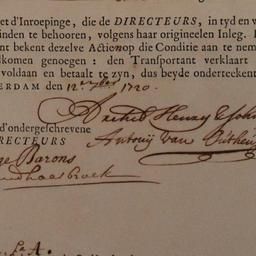 et d'Inroepinge, die de DIRECTEURS, in tyd en v
inden te behooren, volgens haar origineelen Inleg.
nt bekent dezelve Actionop die Conditie aan te nem
dkomen genoegen: den Transportant verklaart
voldaan en betaalt te zyn, dus beyde onderteekent
ERDAM den 12 1720.
Henry
d'ondergeschrevene
Antonij van
RECTEURS
Barons